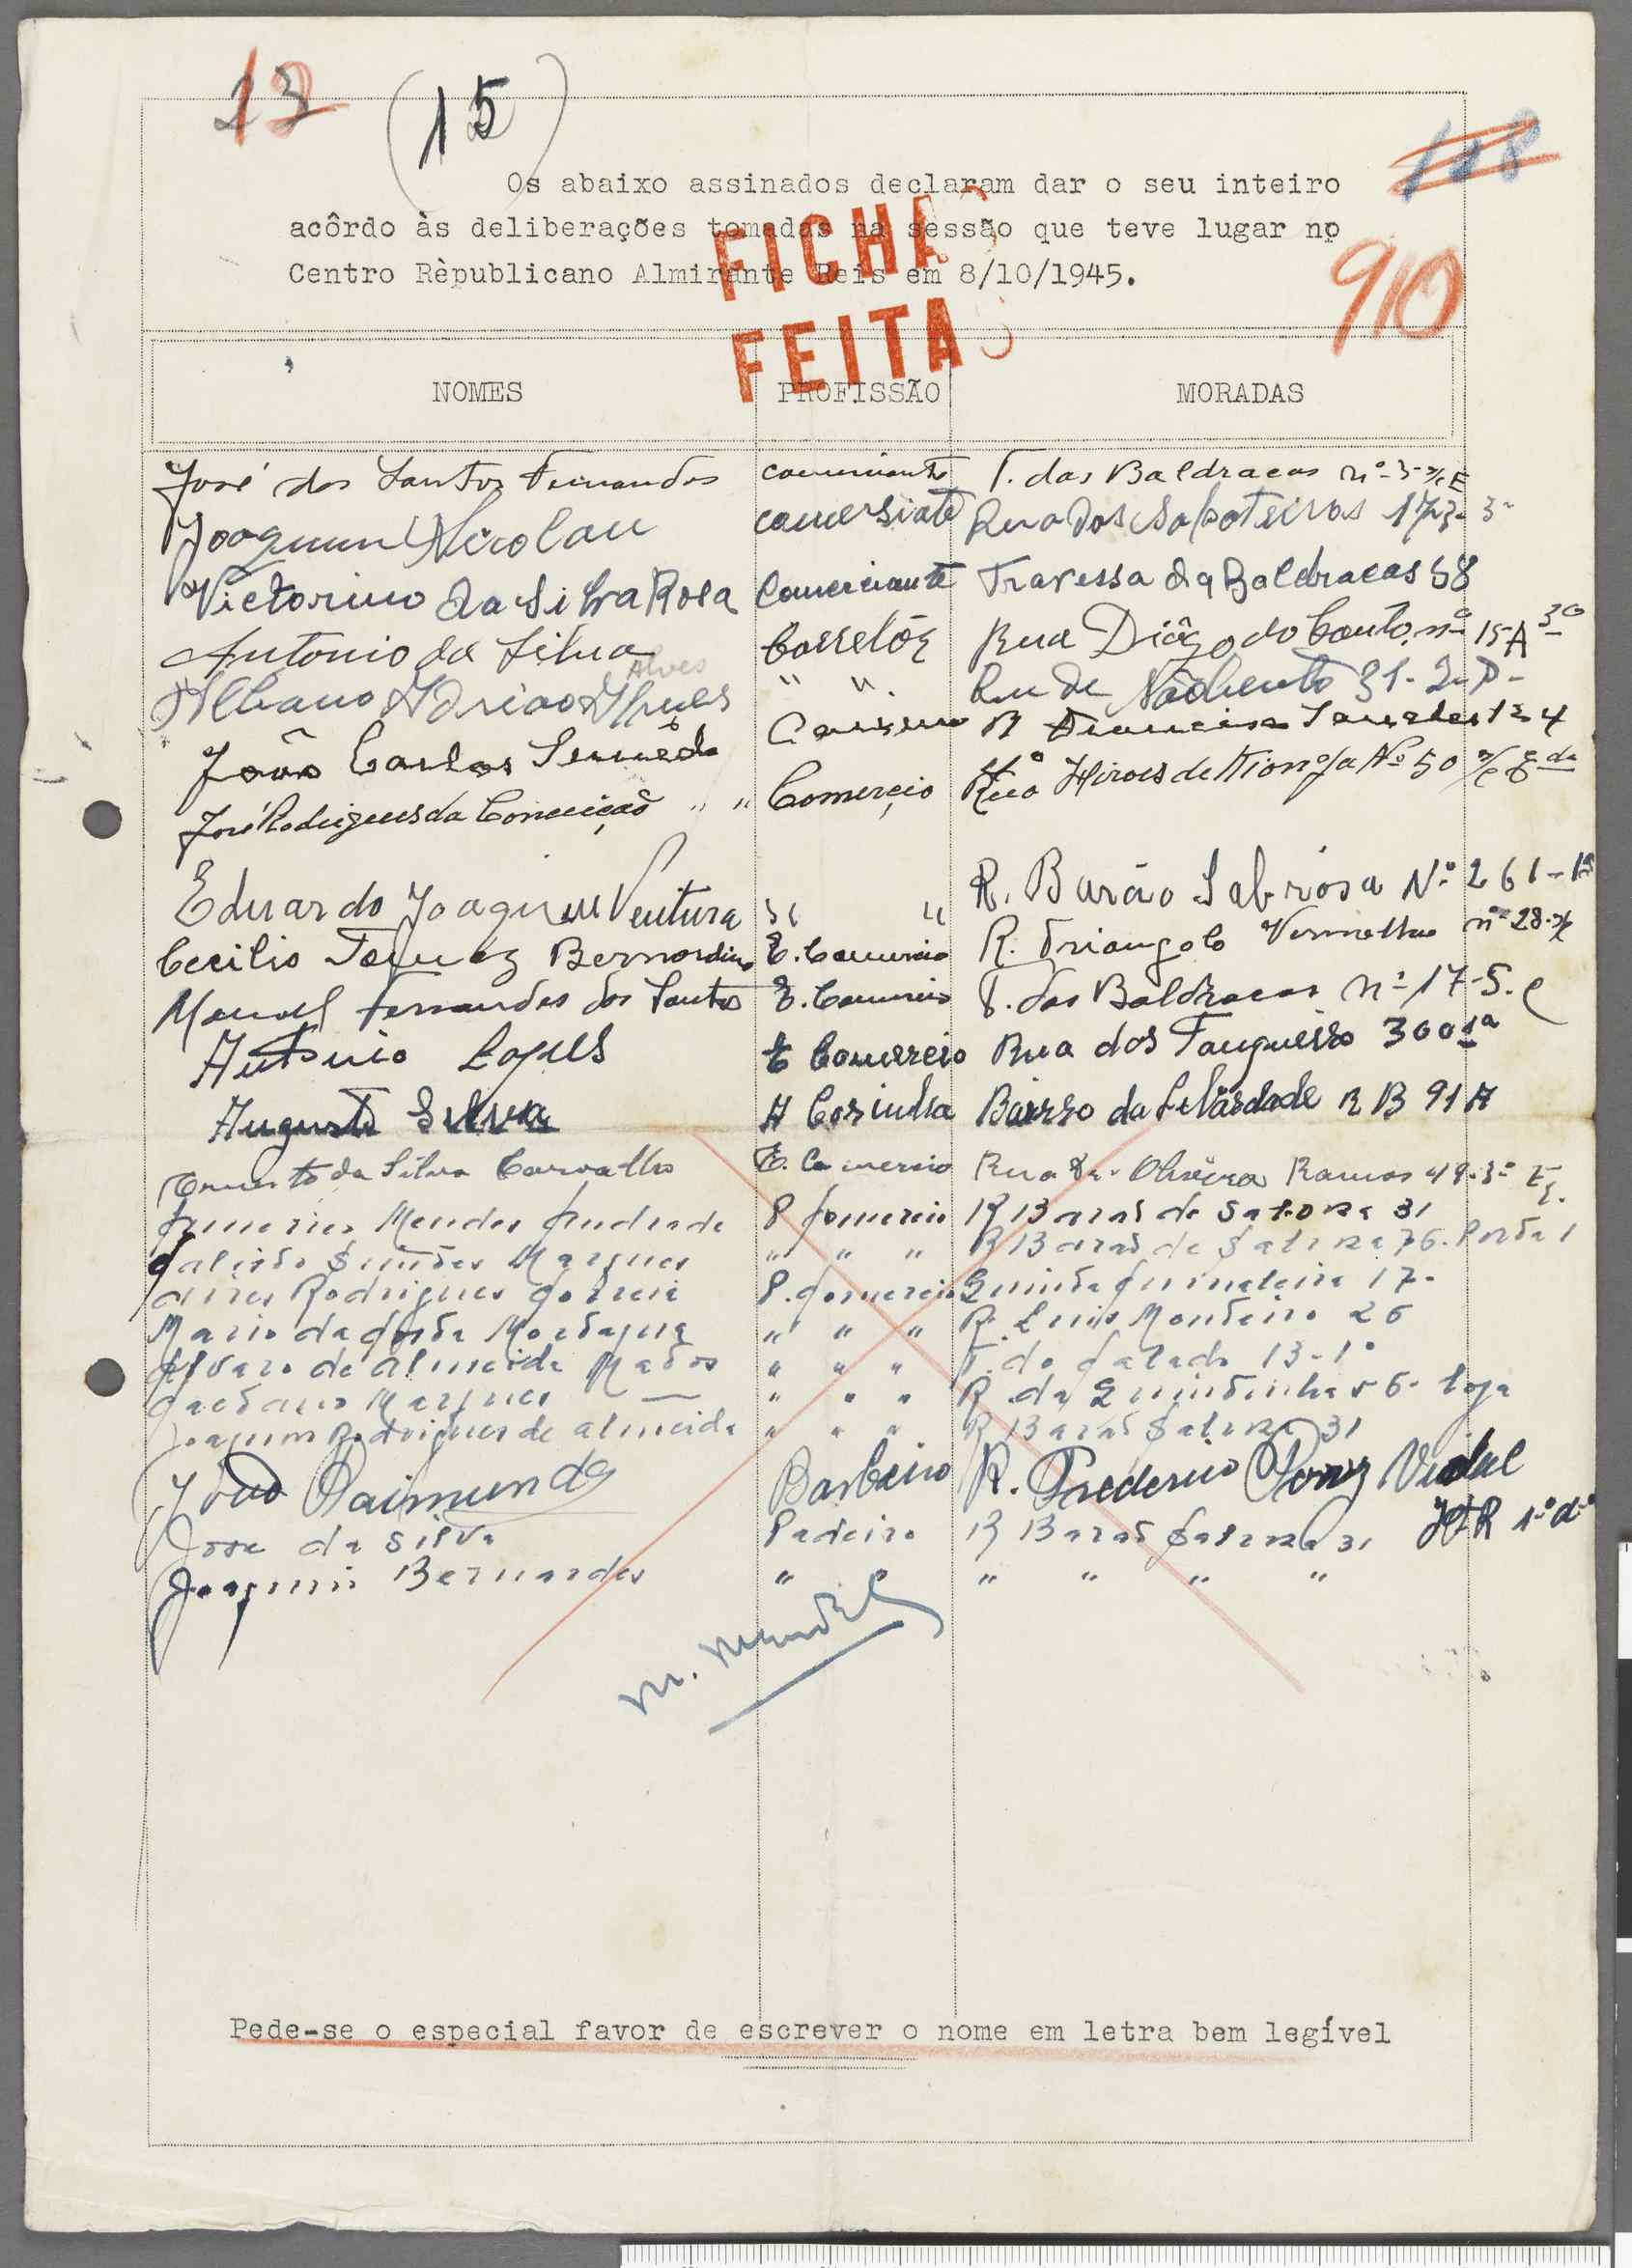 12
(15)
118
Os abaixo assinados declaram dar o seu inteiro
acôrdo às deliberações tomadas na sessão que teve lugar no
Centro Rèpublicano Almirante Reis em 8/10/1945.
910
FICHA
FEITA
NOMES PROFISSÃO MORADAS
José dos Santos Fernandes comerciante T. das Baldracas nº 3-r/c E
Joaquim Nicolau comersiate Rua dos Sapateiros 173-3º
Victorino da Silva Rosa Comerciante Travessa da Baldracas 58
Antonio da Silva Corretór Rua Diôgo do Couto nº 15-A 3º
Alves
Albano Adriao Alves " " Rua de São Bento 31-2º D-
João Carlos Semêdo R Francisco Sanches 13 4º
José Rodrigues da Conceição " " Comerçio Rua Hiroes de Kionga Nº 50 r/c E da
Eduardo Joaquim Ventura " " R. Barão Sabrósa Nº 261-1º
Cecilio Bernardino E. Comercio R. Triangolo Vermelho nº 28-r/c
Manuel Fernandes dos Santos E. Comercio T. das Baldracas nº 17-5. e
António Lopes E Comercio Rua dos Fanqueiro 300 1º
Augusto Silva A Cosinha Bairro da Liberdade R B 91 A
Ernesto da Silva Carvalho E. Comercio Rua Dr. Oliveira Ramos 49-3º E.
Mendes Andrade P Comercio R Barão de Saboza 31
Calisto Simões Marques " " " R Barão de Sabroza 76. Porta 1
Aires Rodrigues Correia P. Comercio Quinta 17-
Mario da Costa Mortagua " " " R. Luis Monteiro 26
Alvaro de Almeida Matos " " " T. do Calado 13-1º
Caetano Marques — " " " R. da Quintinha 56- loja
Joaquim Rodrigues de Almeida " " " R Barão Sabroza 31
João Raimundo Barbeiro R. Frederico Perry Vidal
José da Silva Padeiro R Barão Sabroza 31 1º dº
Joaquim Bernardes " " " " " "
M. Mendes
Pede-se o especial favor de escrever o nome em letra bem legível